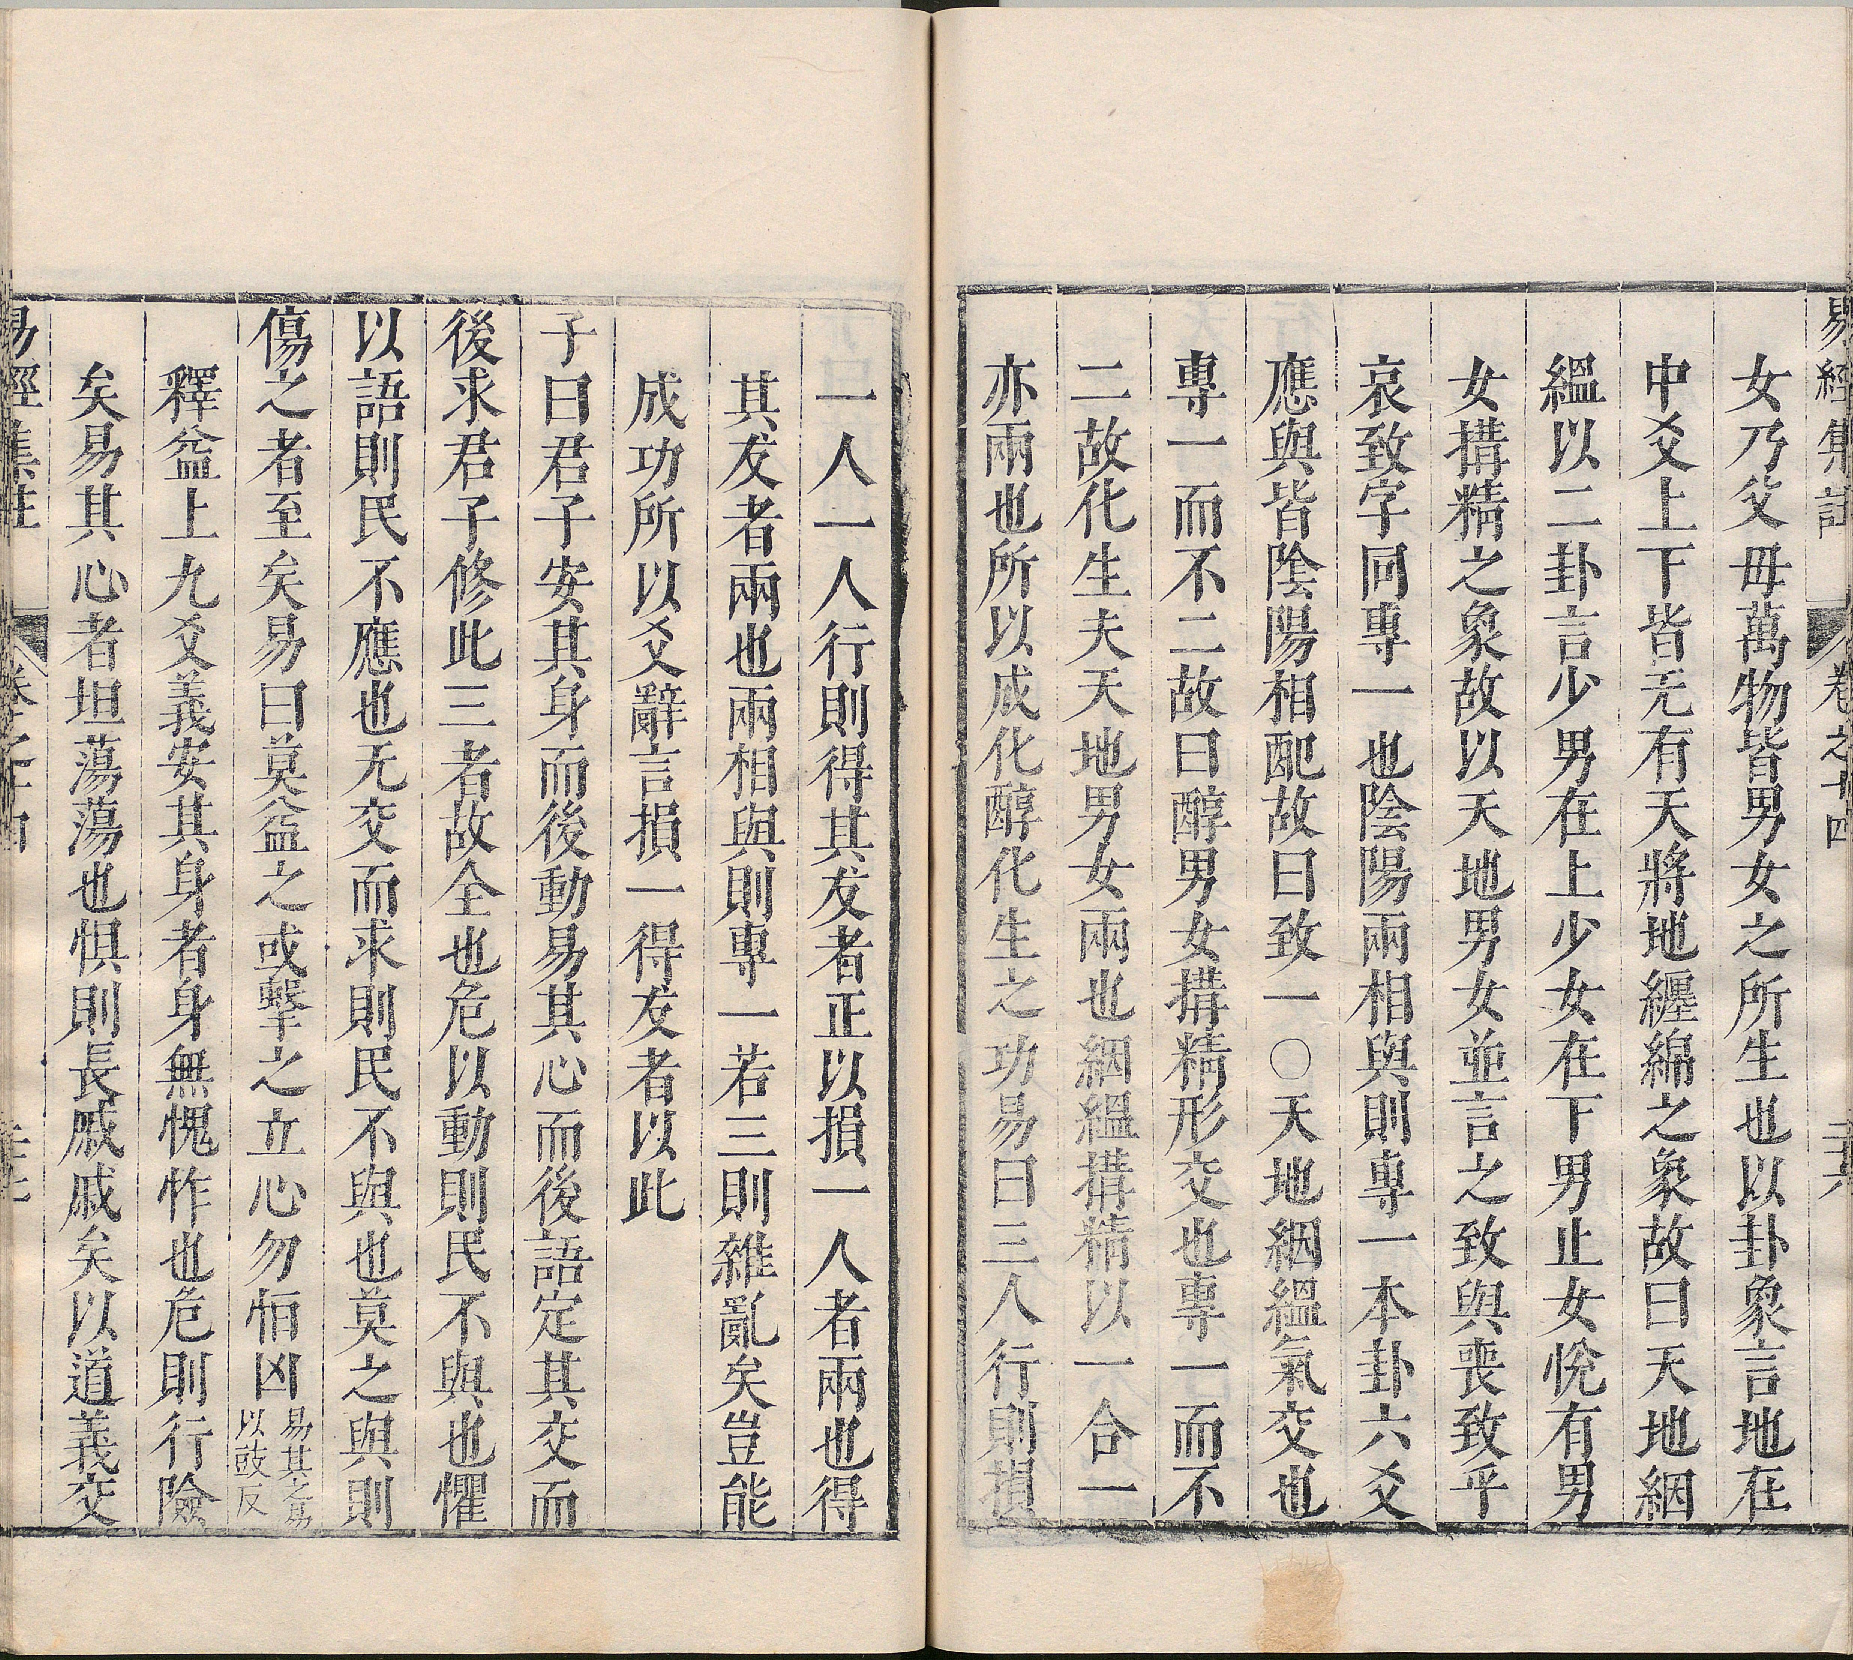 易經集註 卷之十四 二十六
女乃父母萬物皆男女之所生也以卦象言地在
中爻上下皆无有天將地纏綿之象故曰天地絪
縕以二卦言少男在上少女在下男止女悅有男
女搆精之象故以天地男女並言之致與喪致乎
哀致字同專一也陰陽兩相與則專一本卦六爻
應與皆陰陽相配故曰致一○天地絪縕氣交也
專一而不二故曰醇男女搆精形交也專一而不
二故化生夫天地男女兩也絪縕搆精以一合一
亦兩也所以成化醇化生之功易曰三人行則損
一人一人行則得其友者正以損一人者兩也得
其友者兩也兩相與則專一若三則雜亂矣豈能
成功所以爻辭言損一得友者以此
子曰君子安其身而後動易其心而後語定其交而
後求君子修此三者故全也危以動則民不與也懼
以語則民不應也无交而求則民不與也莫之與則
傷之者至矣易曰莫益之或擊之立心勿恒凶易其之易以豉反
釋益上九爻義安其身者身無愧怍也危則行險
矣易其心者坦蕩蕩也懼則長戚戚矣以道義交
易經集註